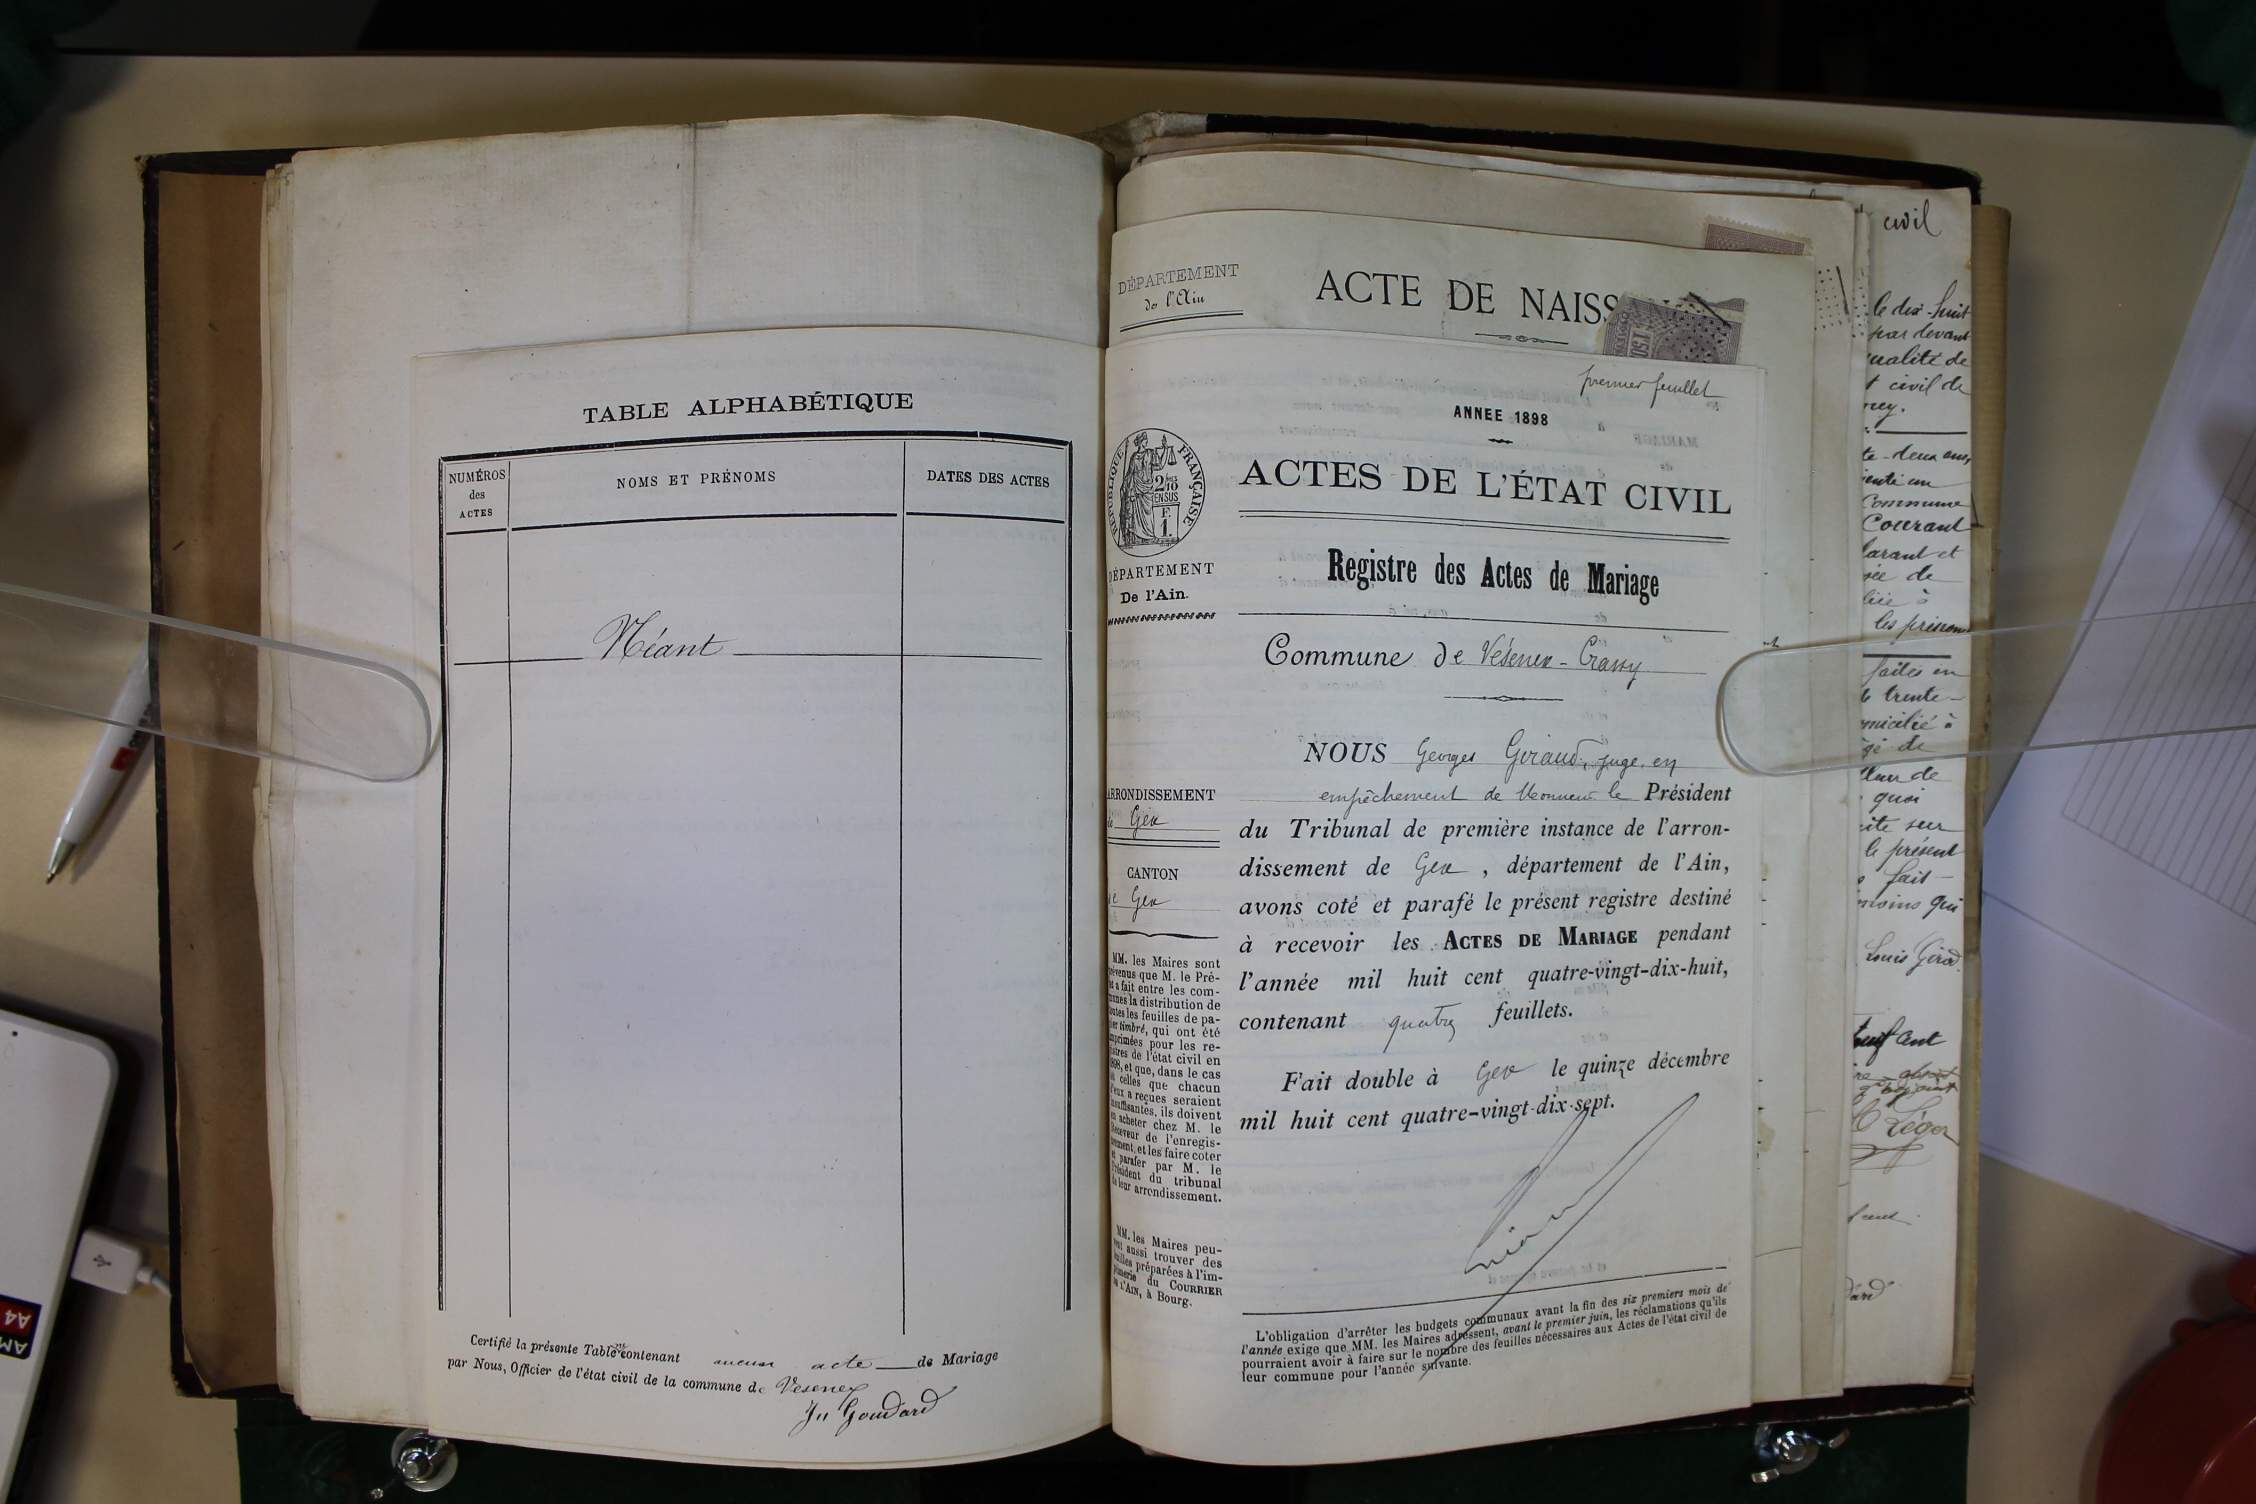 TABLE ALPHABÉTIQUE
NUMÉROS
des
ACTES
NOMS ET PRÉNOMS
DATES DES ACTES
Néant
Certifié la présente Table contenant aucun acte de Mariage
par Nous, Officier de l'état civil de la commune de Vesenex
Jn Goudard
DÉPARTEMENT
de l'Ain
ACTE DE NAISS
premier feuillet
ANNEE 1898
RÉPUBLIQUE FRANÇAISE
2/10
EN SUS
F.
1.
ACTES DE L'ÉTAT CIVIL
DÉPARTEMENT
De l'Ain.
Registre des Actes de Mariage
Commune de Vésenex-Crassy
NOUS Georges Giraud, juge, en
empêchement de Monsieur le Président
du Tribunal de première instance de l'arron-
dissement de Gex, département de l'Ain,
avons coté et parafé le présent registre destiné
à recevoir les ACTES DE MARIAGE pendant
l'année mil huit cent quatre-vingt-dix-huit,
contenant quatre feuillets.
Fait double à Gex le quinze décembre
mil huit cent quatre-vingt-dix-sept.
ARRONDISSEMENT
de Gex
CANTON
de Gex
MM. les Maires sont
prévenus que M. le Pré-
et a fait entre les com-
munes la distribution de
toutes les feuilles de pa-
pier timbré, qui ont été
imprimées pour les re-
gistres de l'état civil en
1898, et que, dans le cas
où celles que chacun
d'eux a reçues seraient
insuffisantes, ils doivent
en acheter chez M. le
Receveur de l'enregis-
trement, et les faire coter
et parafer par M. le
Président du tribunal
de leur arrondissement.
MM. les Maires peu-
vent aussi trouver des
feuilles préparées à l'im-
primerie du COURRIER
DE L'AIN, à Bourg.
L'obligation d'arrêter les budgets communaux avant la fin des six premiers mois de
l'année exige que MM. les Maires adressent, avant le premier juin, les réclamations qu'ils
pourraient avoir à faire sur le nombre des feuilles nécessaires aux Actes de l'état civil de
leur commune pour l'année suivante.
civil
le dix-huit
par devant
qualité de
civil de
te-deux ans,
Commune
Courant
larant et
de
à
les prénoms
faites en
trente-
micilié à
de
de
quoi
cite sur
le présent
fait
témoins qui
Louis Girod
Léger
A4